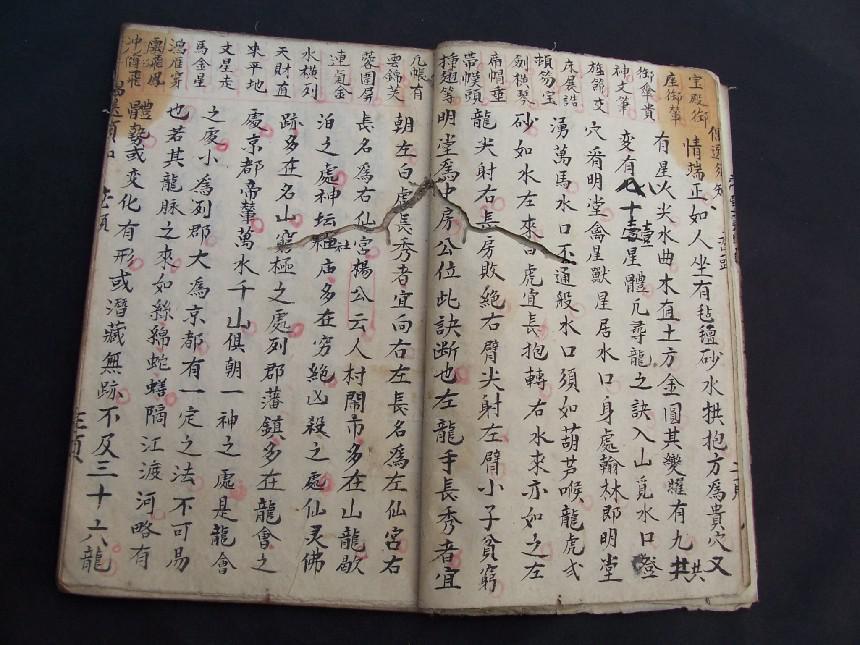 情端正如人坐有毡氊砂水拱抱方為貴穴又
有星火尖水曲木直土方金圓其變耀有九拱
變有八十壹星體凡尋龍之訣入山覓水口登
穴看明堂禽星獸星居水口身處翰林即明堂
湧萬馬水口不通般水口須如葫芦喉龍虎式
砂如水左來白虎宜長抱轉右水來亦如之左
龍尖射右長房敗絕右臂尖射左臂小子貧窮
明堂為中房公位此訣断也左龍手長秀者宜
朝左白虎長秀者宜向右左長名為左仙宮右
長名為右仙宮楊公云人村閙市多在山龍歇
泊之處神坛社庙多在穷絕凶殺之處仙灵佛
跡多在名山窮極之處列郡藩鎮多在龍會之
處京都帝輦萬水千山俱朝一神之處是龍會
之處小為列郡大為京都有一定之法不可易
也若其龍脉之來如絲綿蛇蟮隔江渡河略有
體勢或变化有形或潛藏無跡不及三十六龍
宝殿御
座御輦
御傘貴
神文筆
旌節交
床展誥
頓笏宝
劍橫琴
帝幞頭
几帳有
雲錦芙
蓉圍屏
連氣金
水橫列
天財直
來平地
文星走
馬金星
鴻雁穿